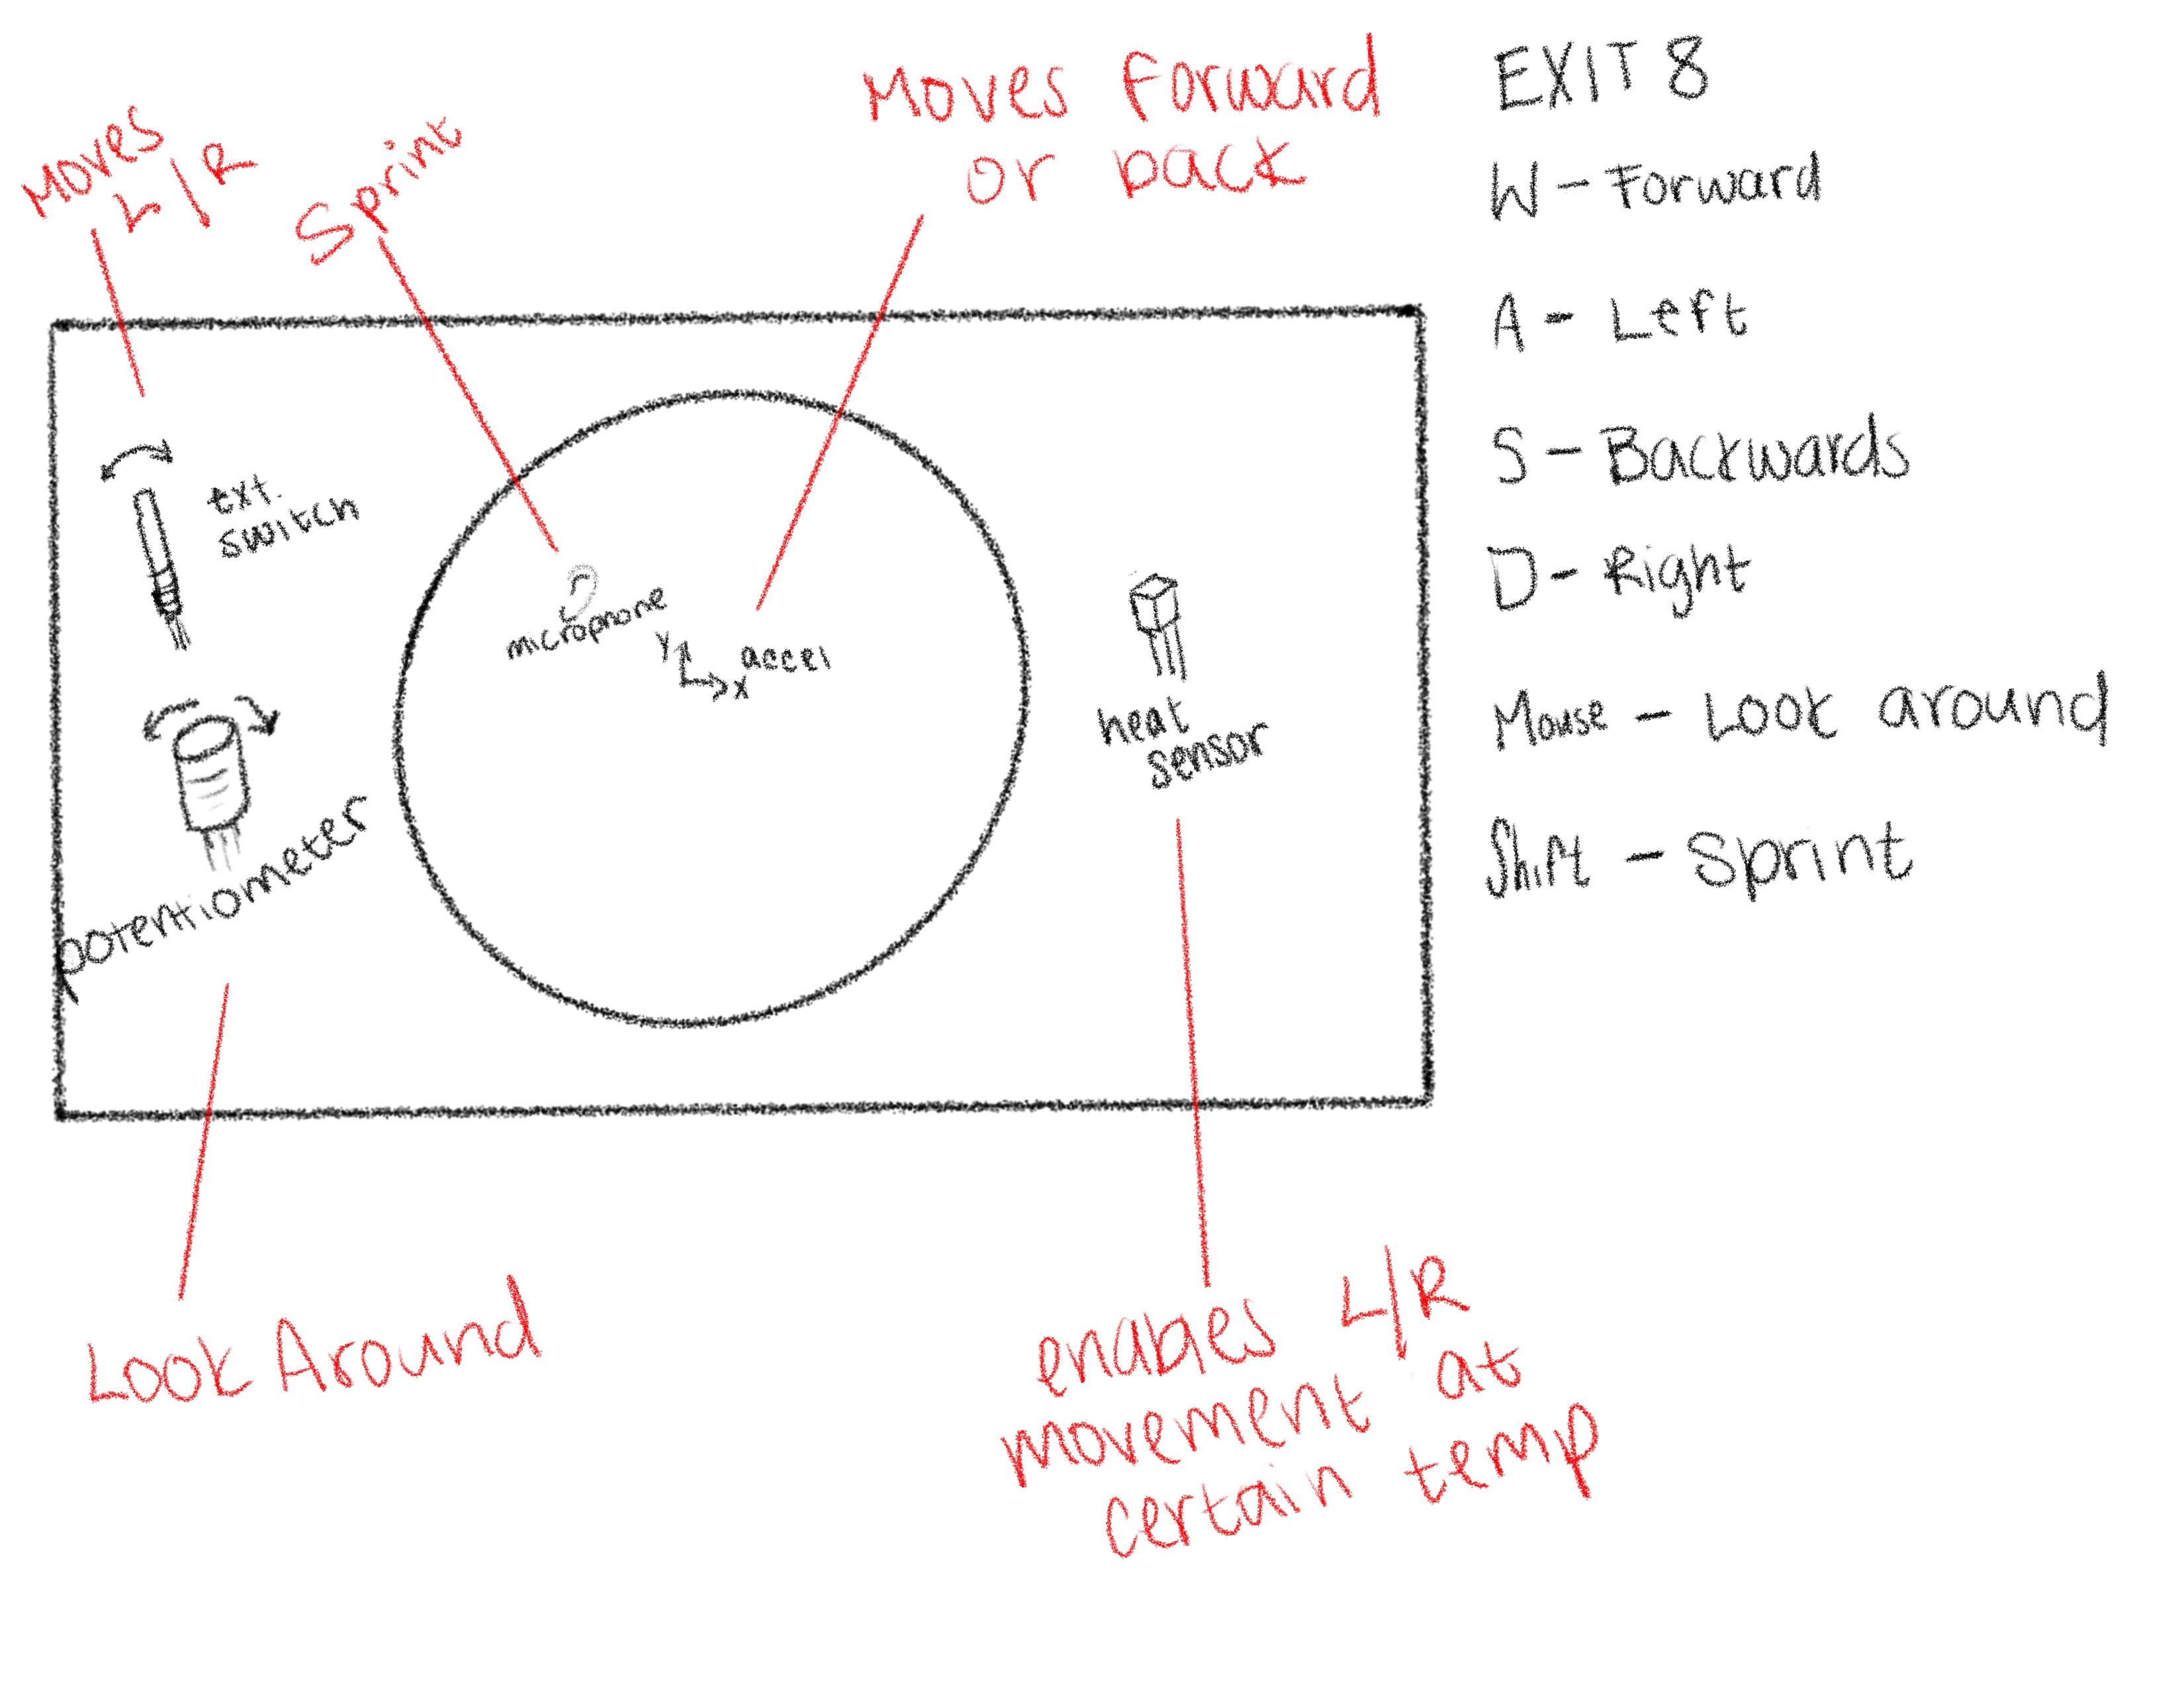 Moves
L/R
Sprint
Moves Forward
or back
ext.
switch
microphone
Y
X
accel
potentiometer
heat
sensor
Look Around
enables L/R
movement at
certain temp
EXIT 8
W - Forward
A - Left
S - Backwards
D - Right
Mouse - Look around
Shift - Sprint